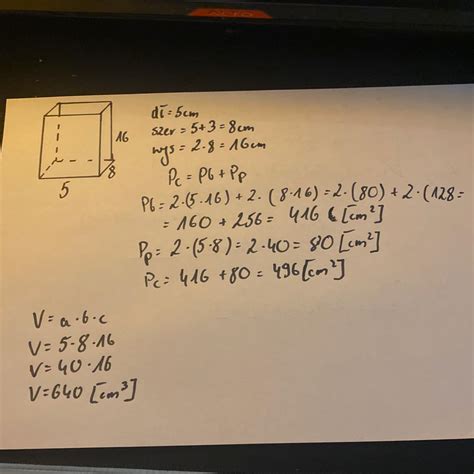 16
8
5
dł = 5cm
szer = 5+3 = 8cm
wys = 2·8 = 16cm
Pc = Pb + Pp
Pb = 2·(5·16) + 2·(8·16) = 2·(80) + 2·(128 =
= 160 + 256 = 416 [cm²]
Pp = 2·(5·8) = 2·40 = 80 [cm²]
Pc = 416 + 80 = 496 [cm²]
V = a·b·c
V = 5·8·16
V = 40·16
V = 640 [cm³]